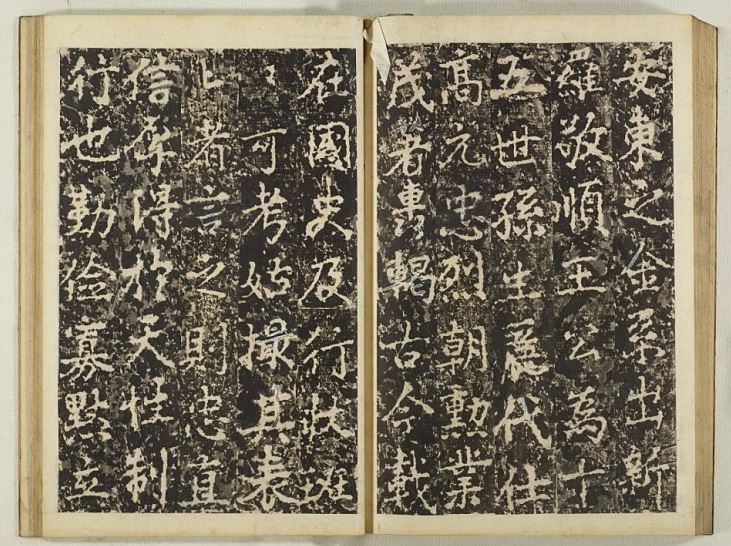 安東之金系出新
羅敬順王公為十
五世孫生麗代仕
高元忠烈朝勳業
茂著轟輵古今載
在國史及行狀班
〻可考姑撮其表
上者言之則忠直
信厚得於天性制
行也勤儉寡默立